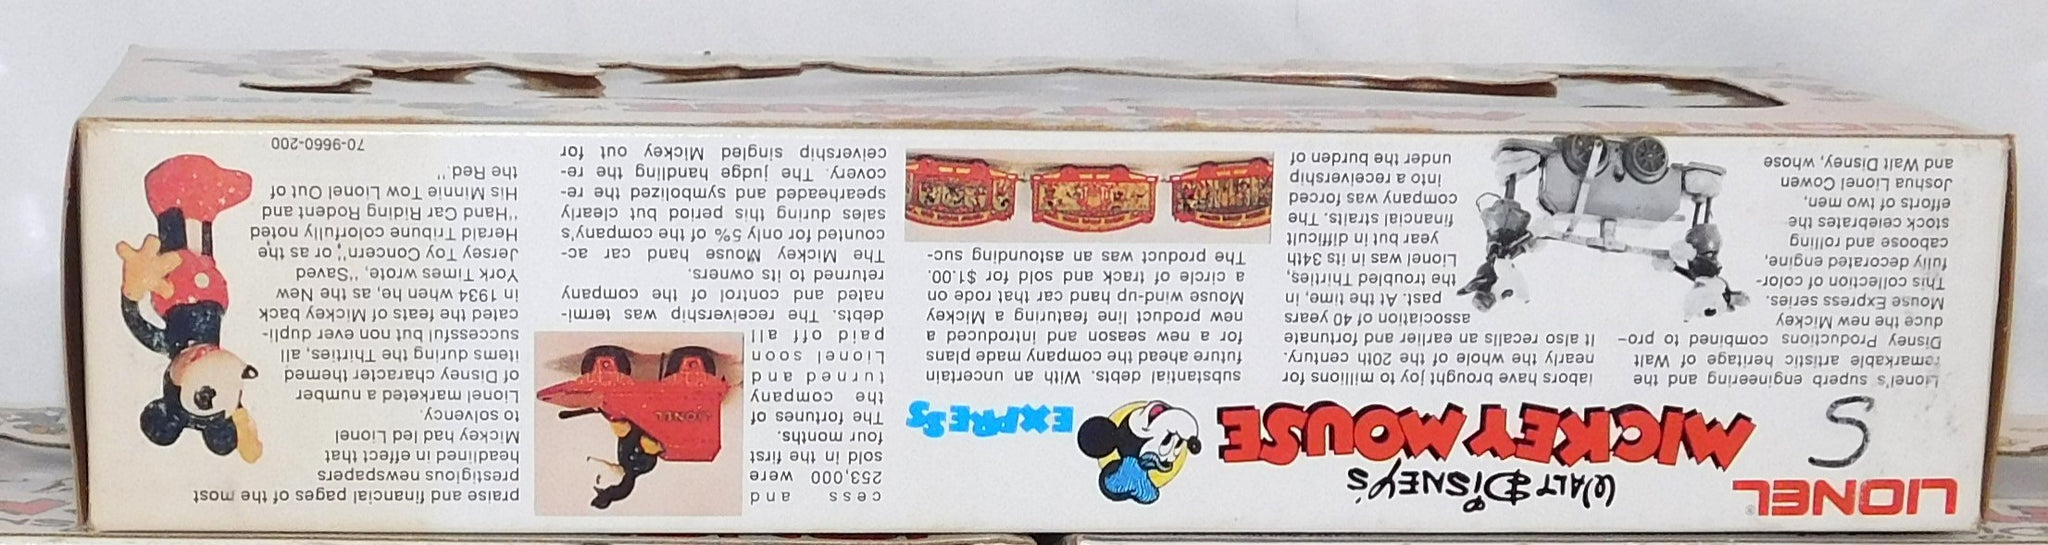 LIONEL®
S
WALT DISNEY'S
MICKEY MOUSE
EXPRESS
Lionel's superb engineering and the
remarkable artistic heritage of Walt
Disney Productions combined to pro-
duce the new Mickey
Mouse Express series.
This collection of color-
fully decorated engine,
caboose and rolling
stock celebrates the
efforts of two men,
Joshua Lionel Cowen
and Walt Disney, whose
labors have brought joy to millions for
nearly the whole of the 20th century.
It also recalls an earlier and fortunate
association of 40 years
past. At the time, in
the troubled Thirties,
Lionel was in its 34th
year but in difficult
financial straits. The
company was forced
into a receivership
under the burden of
substantial debts. With an uncertain
future ahead the company made plans
for a new season and introduced a
new product line featuring a Mickey
Mouse wind-up hand car that rode on
a circle of track and sold for $1.00.
The product was an astounding suc-
cess and
253,000 were
sold in the first
four months.
The fortunes of
the company
turned and
Lionel soon
paid off all
debts. The receivership was termi-
nated and control of the company
returned to its owners.
The Mickey Mouse hand car ac-
counted for only 5% of the company's
sales during this period but clearly
spearheaded and symbolized the re-
covery. The judge handling the re-
ceivership singled Mickey out for
praise and financial pages of the most
prestigious newspapers
headlined in effect that
Mickey had led Lionel
to solvency.
Lionel marketed a number
of Disney character themed
items during the Thirties, all
successful but non ever dupli-
cated the feats of Mickey back
in 1934 when he, as the New
York Times wrote, "Saved
Jersey Toy Concern", or as the
Herald Tribune colorfully noted
"Hand Car Riding Rodent and
His Minnie Tow Lionel Out of
the Red."
70-9660-200
LIONEL